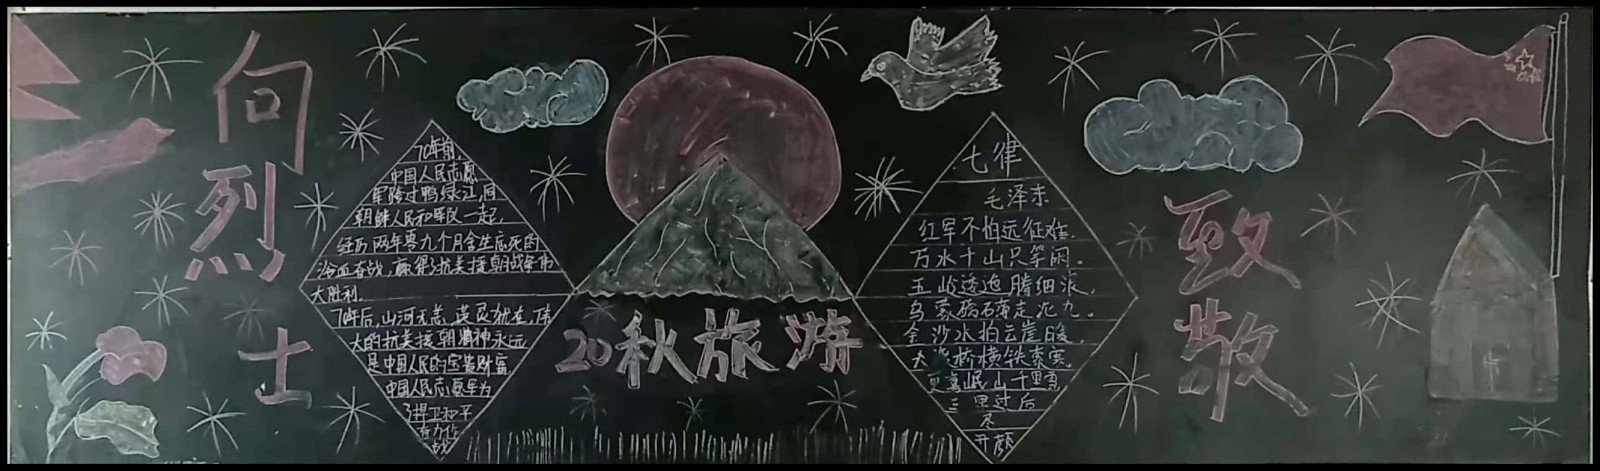 向
烈
士
70年前,
中国人民志愿
军跨过鸭绿江同
朝鲜人民和军队一起,
经历两年零九个月舍生忘死的
浴血奋战,赢得了抗美援朝战争伟
大胜利。
70年后,山河无恙,英灵犹在,伟
大的抗美援朝精神永远
是中国人民的宝贵财富
中国人民志愿军为
了捍卫和平
奋力作
战
20秋旅游
七律
毛泽东
红军不怕远征难.
万水千山只等闲。
五岭逶迤腾细浪,
乌蒙磅礴走泥丸
金沙水拍云崖暖,
大渡桥横铁索寒
更喜岷山千里雪
三军过后
尽
开颜
致
敬